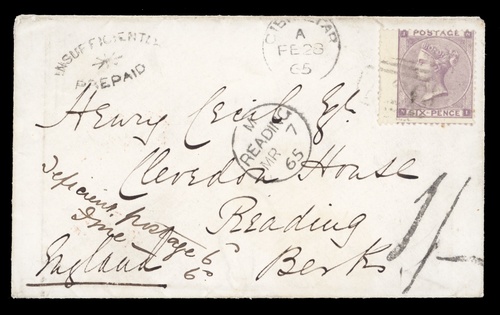 INSUFFICIENTLY
PREPAID
GIBRALTAR
A
FE 28
65
POSTAGE
SIX PENCE
Henry Cecil Esq.
READING
M
MR 7
65
Clevedon House
Reading
Berks
England
Deficient Postage 6d
Fine 6d
1/-